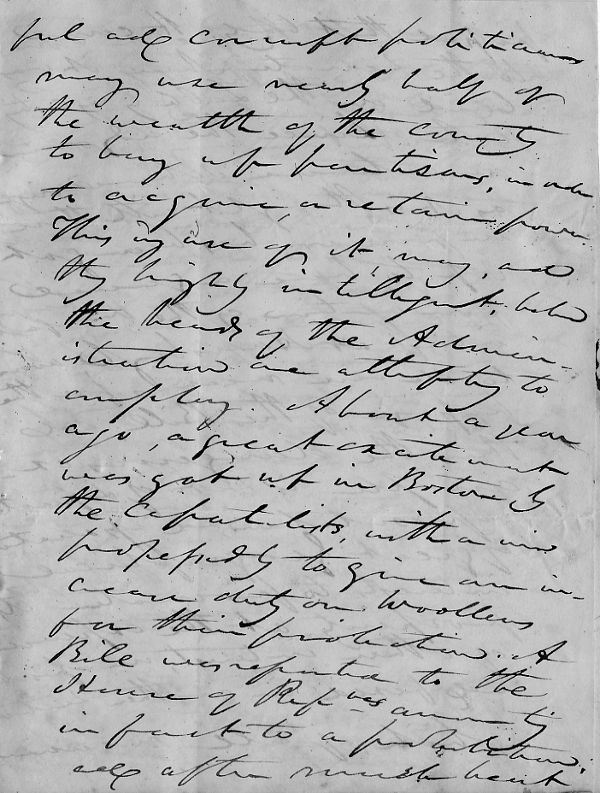 ful and corrupt politicians
may use nearly half of
the wealth of the county
to buy up partisans, in order
to acquire, or retain power.
This use of it may, and
the highly intelligent, believe
the heads of the Admin-
istration are attempting to
employ. About a year
ago, a great excitement
was got up in Boston by
the Capatilists, with a view
professedly to give an in-
crease duty on Woollens
for their protection. A
Bill was reported to the
House of Rep.ves amounting
in fact to a prohibition,
and after much heat